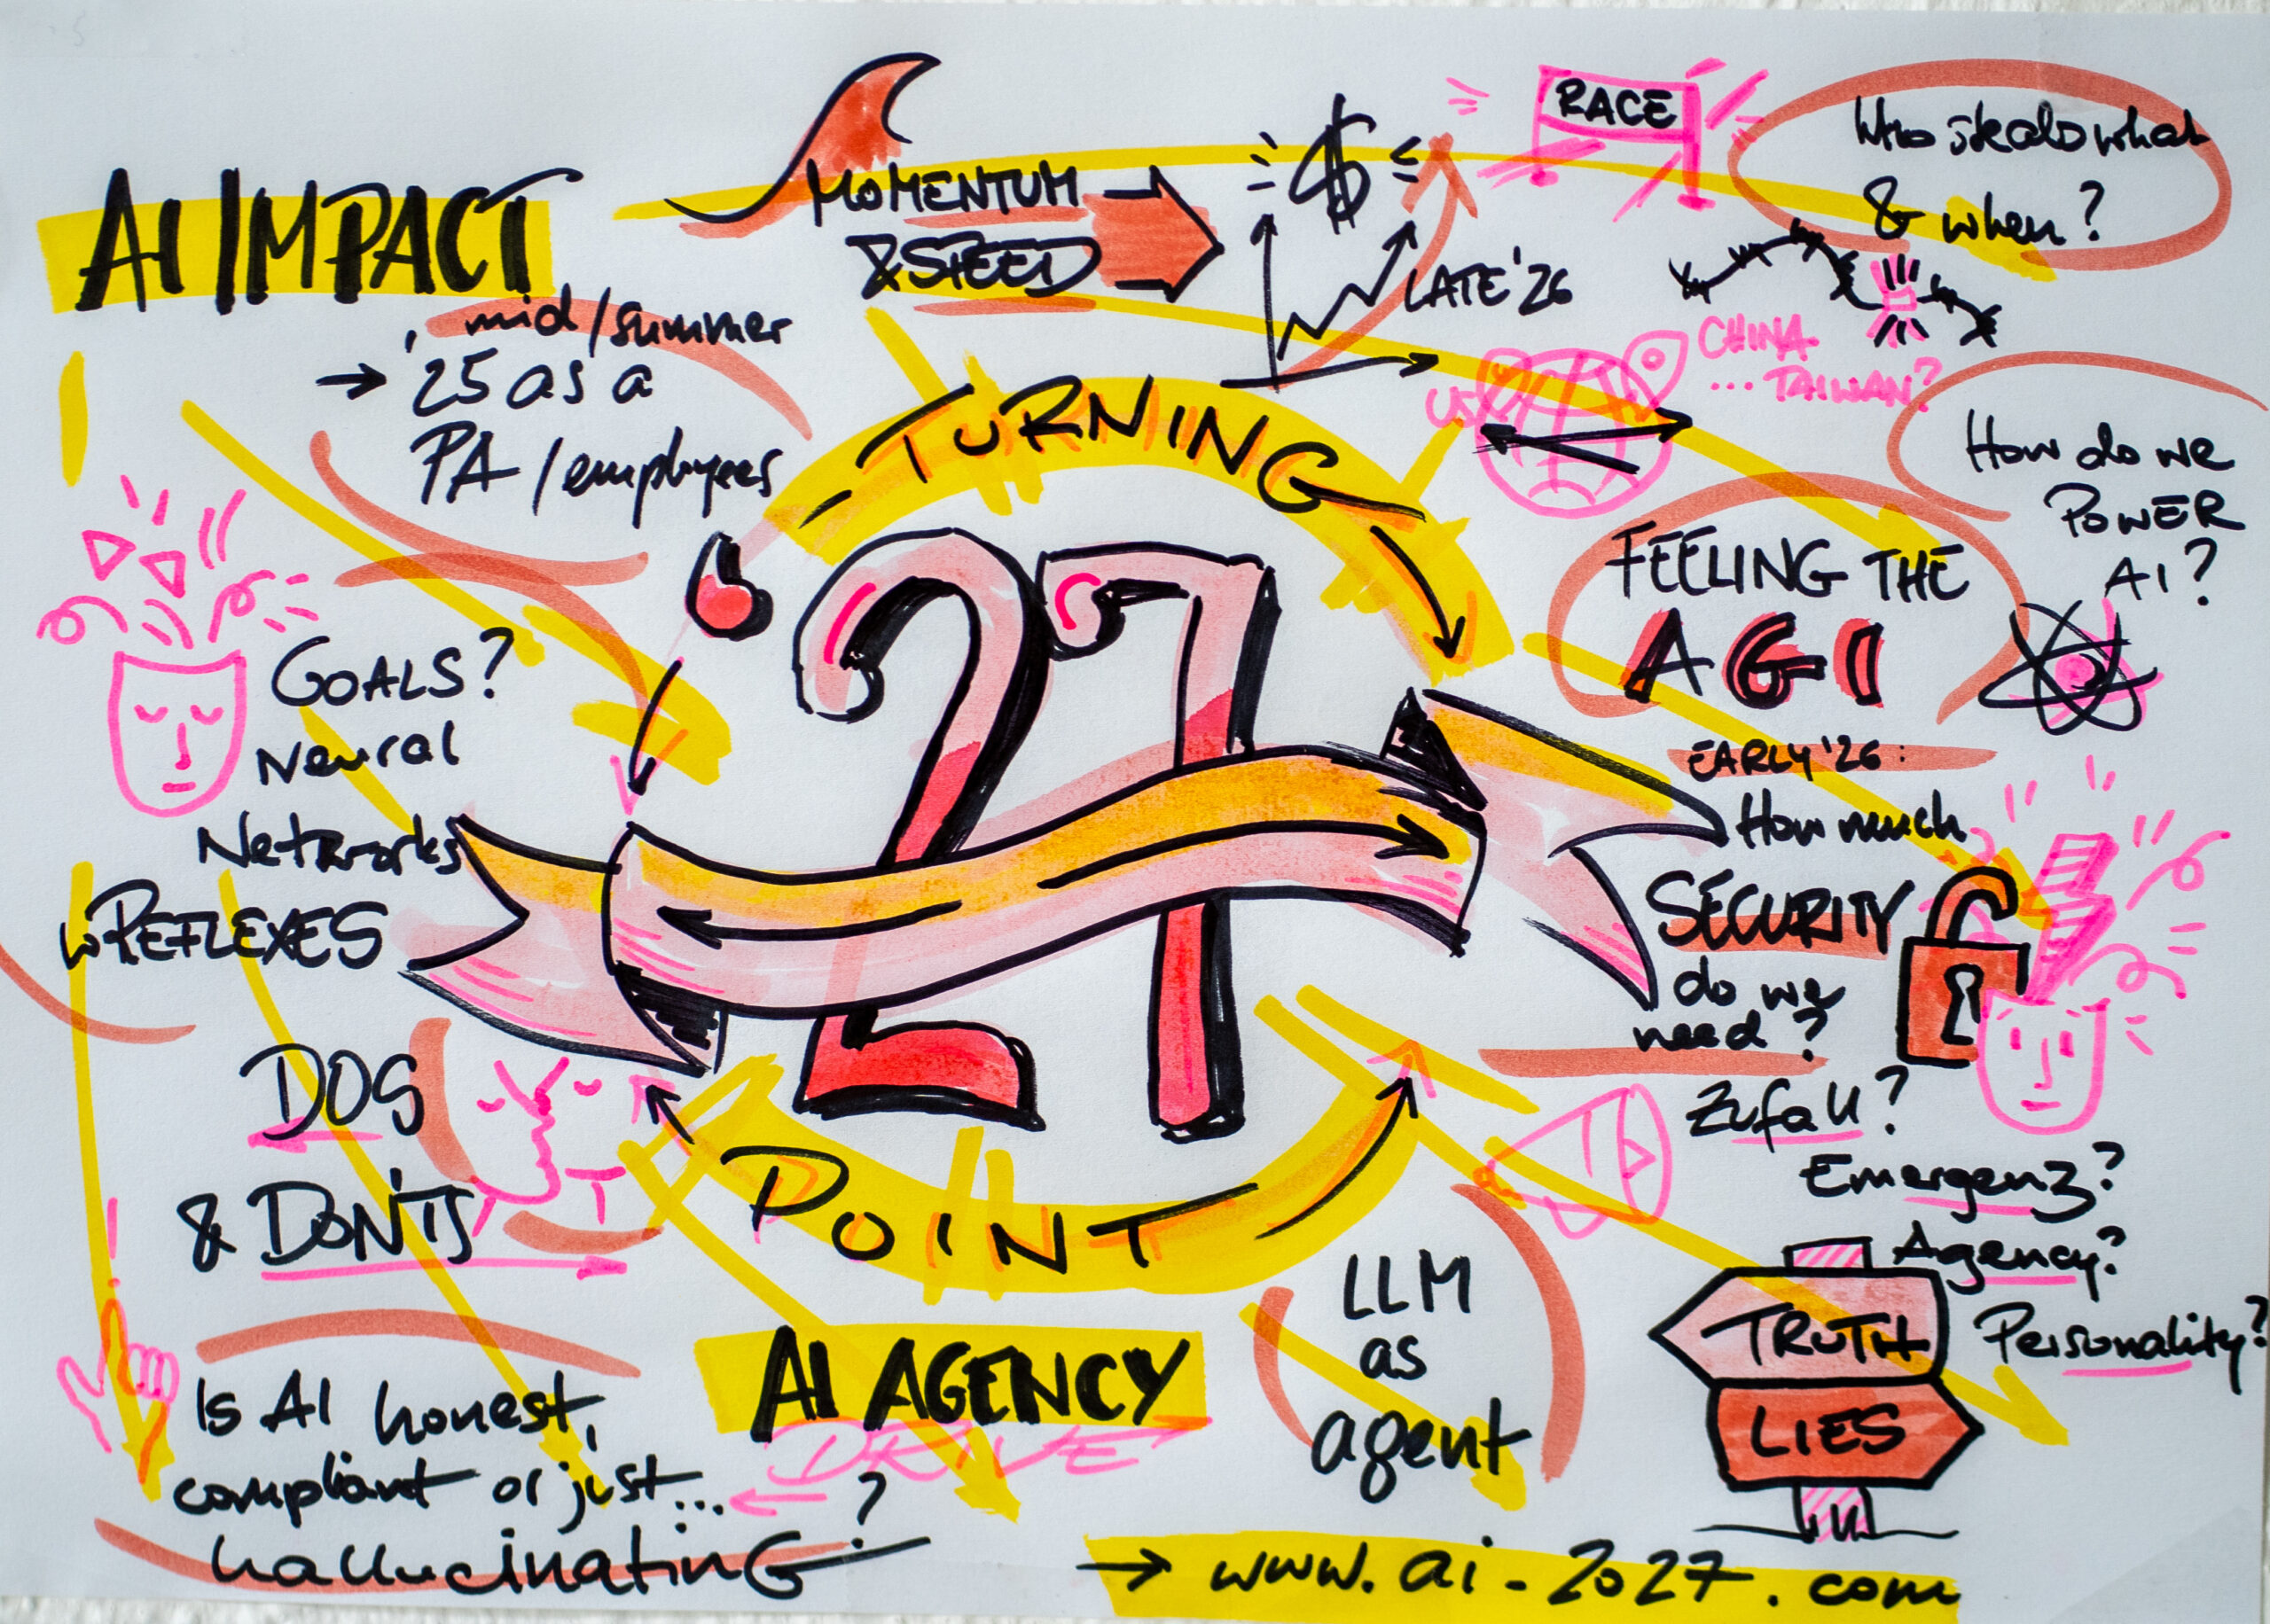 AI IMPACT
mid/summer
→ '25 as a
PA/employees
MOMENTUM
& SPEED
$
LATE '26
RACE
Who steals what
& when?
US
CHINA
... TAIWAN?
How do we
POWER
AI?
TURNING
'27
POINT
FEELING THE
AGI
EARLY '26:
How much
SECURITY
do we
need?
Zufall?
Emergenz?
Agency?
Personality?
TRUTH
LIES
GOALS?
Neural
Networks
w REFLEXES
DOS
& DON'TS
Is AI honest,
compliant or just...
hallucinating?
AI AGENCY
DRIVE
LLM
as
agent
→ www.ai-2027.com